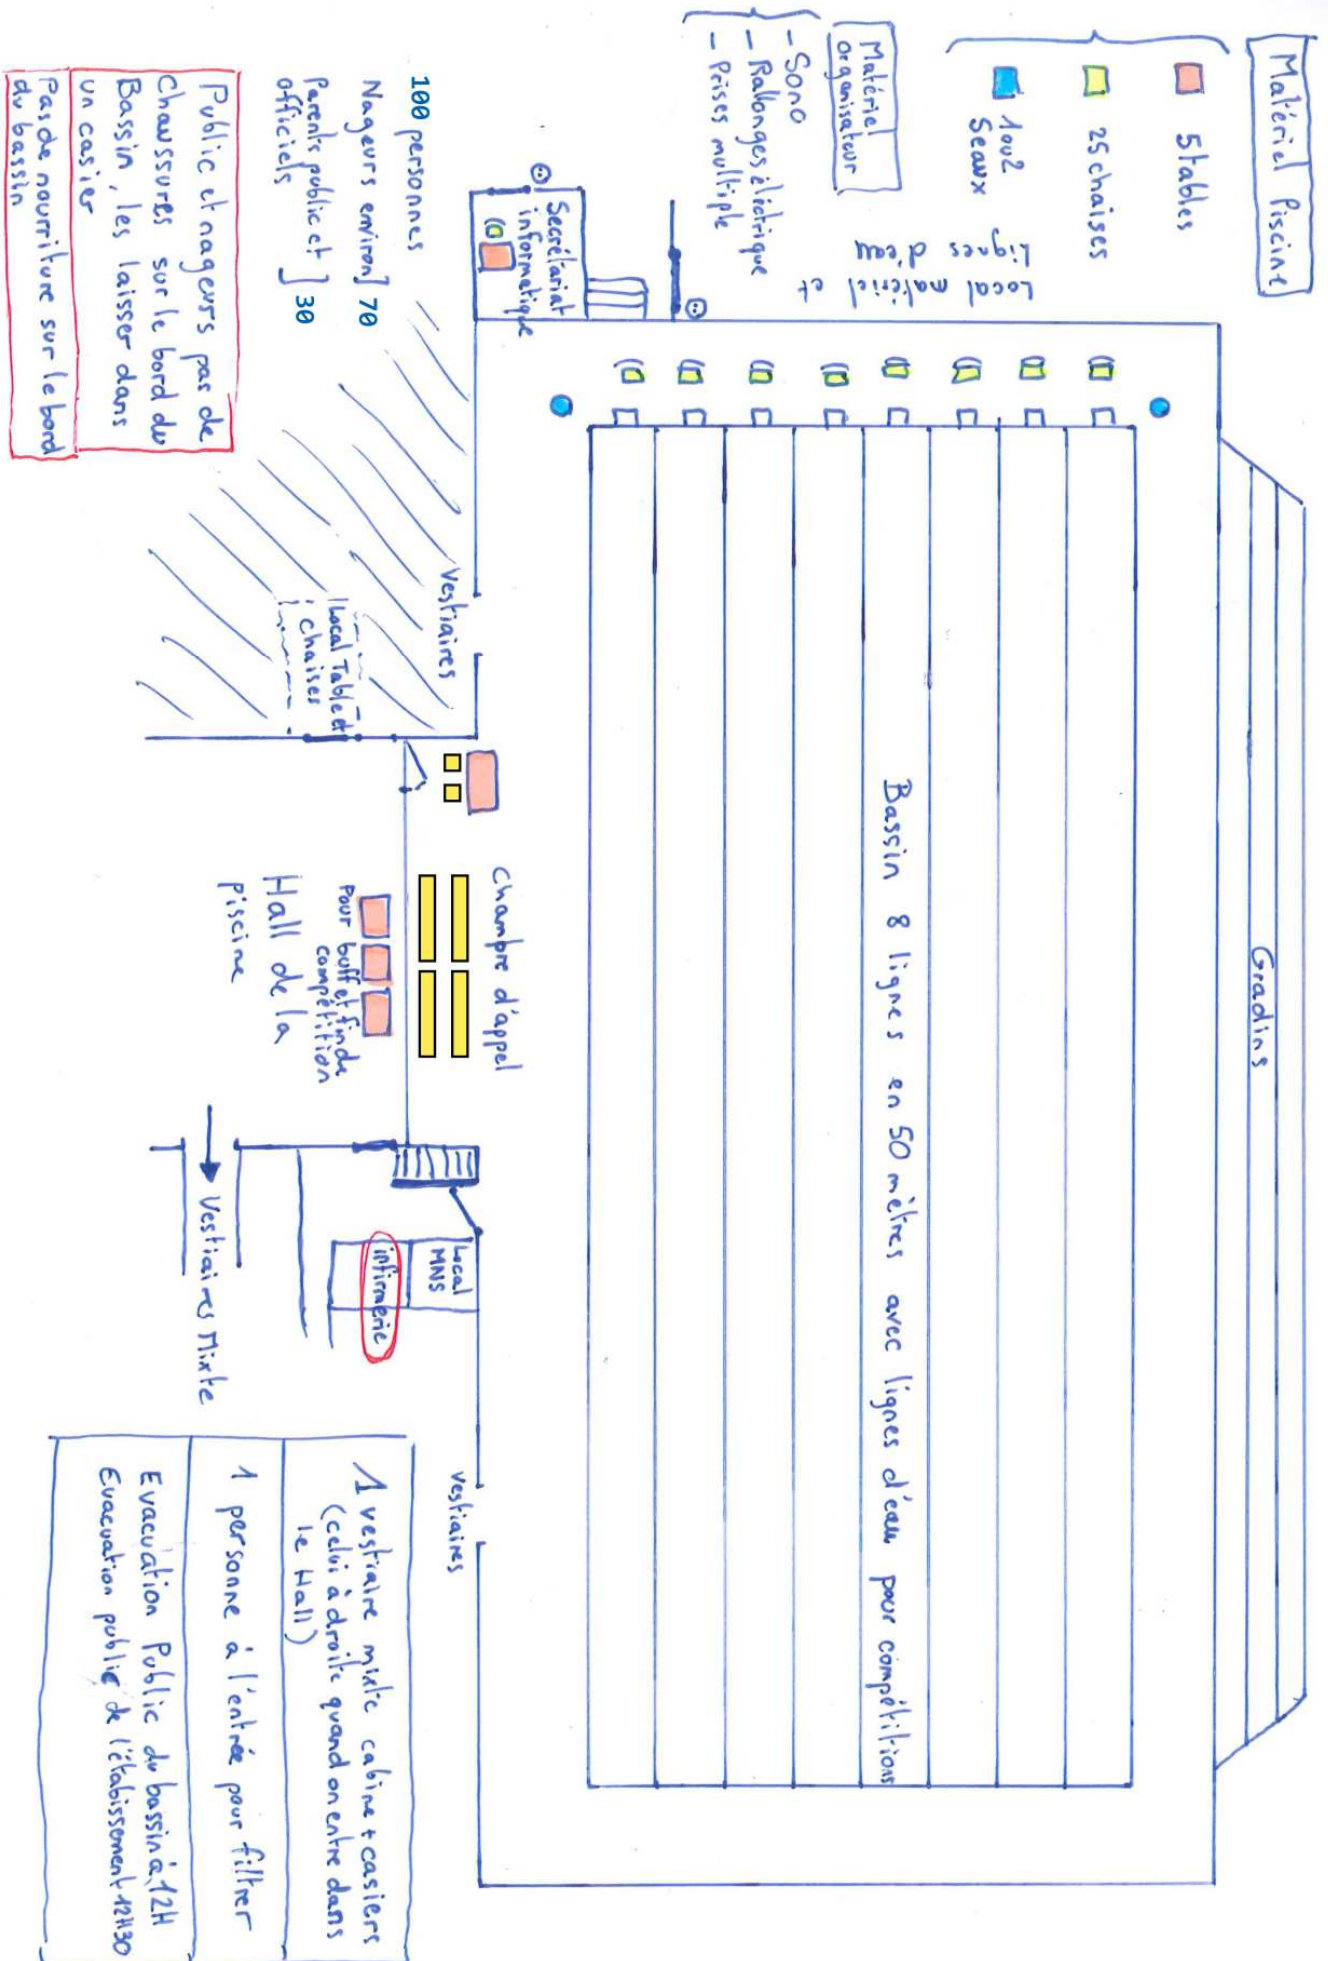 Matériel Piscine
5 tables
25 chaises
1 ou 2
Seaux
Matériel
organisateur
- Sono
- Rallonges électrique
- Prises multiple
Local matériel et
Lignes d'eau
Secrétariat
informatique
100 personnes
Nageurs environ] 70
Parents public et
officiels ] 30
Public et nageurs pas de
Chaussures sur le bord du
Bassin, les laisser dans
un casier
Pas de nourriture sur le bord
du bassin
Gradins
Bassin 8 lignes en 50 mètres avec lignes d'eau pour compétitions
Vestiaires
Local Table et
chaises
Chambre d'appel
Pour buffet fin de
compétition
Hall de la
piscine
Local
MNS
infirmerie
Vestiaires Mixte
Vestiaires
1 vestiaire mixte cabine + casiers
(celui à droite quand on entre dans
le Hall)
1 personne à l'entrée pour filtrer
Evacuation Public du bassin à 12H
Evacuation public de l'établissement 12H30